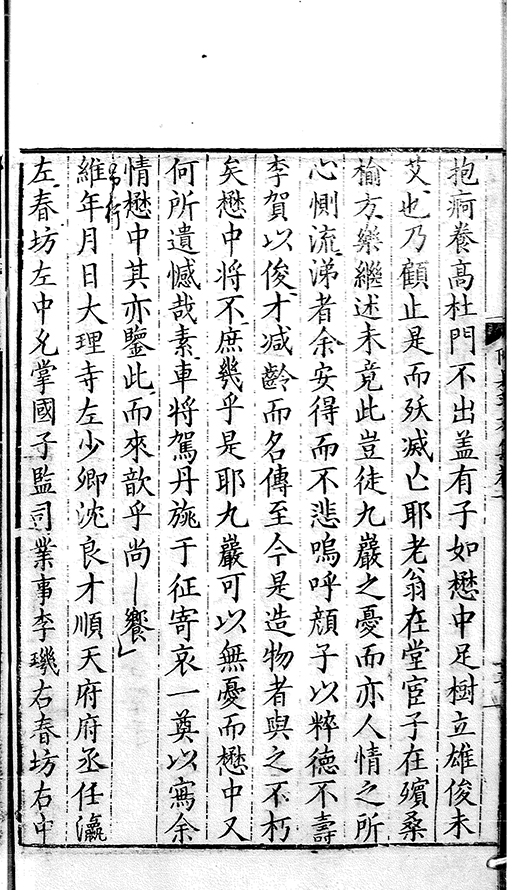 抱痾養高杜門不出盖有子如懋中足樹立雄俊未
艾也乃顧止是而殀滅亡耶老翁在堂宦子在殯桑
榆方樂繼述未竟此豈徒九巖之憂而亦人情之所
心惻流涕者余安得而不悲嗚呼顔子以粹德不壽
李賀以俊才減齡而名傳至今是造物者與之不朽
矣懋中將不庶幾乎是耶九巖可以無憂而懋中又
何所遺憾哉素車將駕丹旐于征寄哀一奠以寫余
情懋中其亦鑒此而來歆乎尚饗
另行
維年月日大理寺左少卿沈良才順天府府丞任瀛
左春坊左中允掌國子監司業事李璣右春坊右中